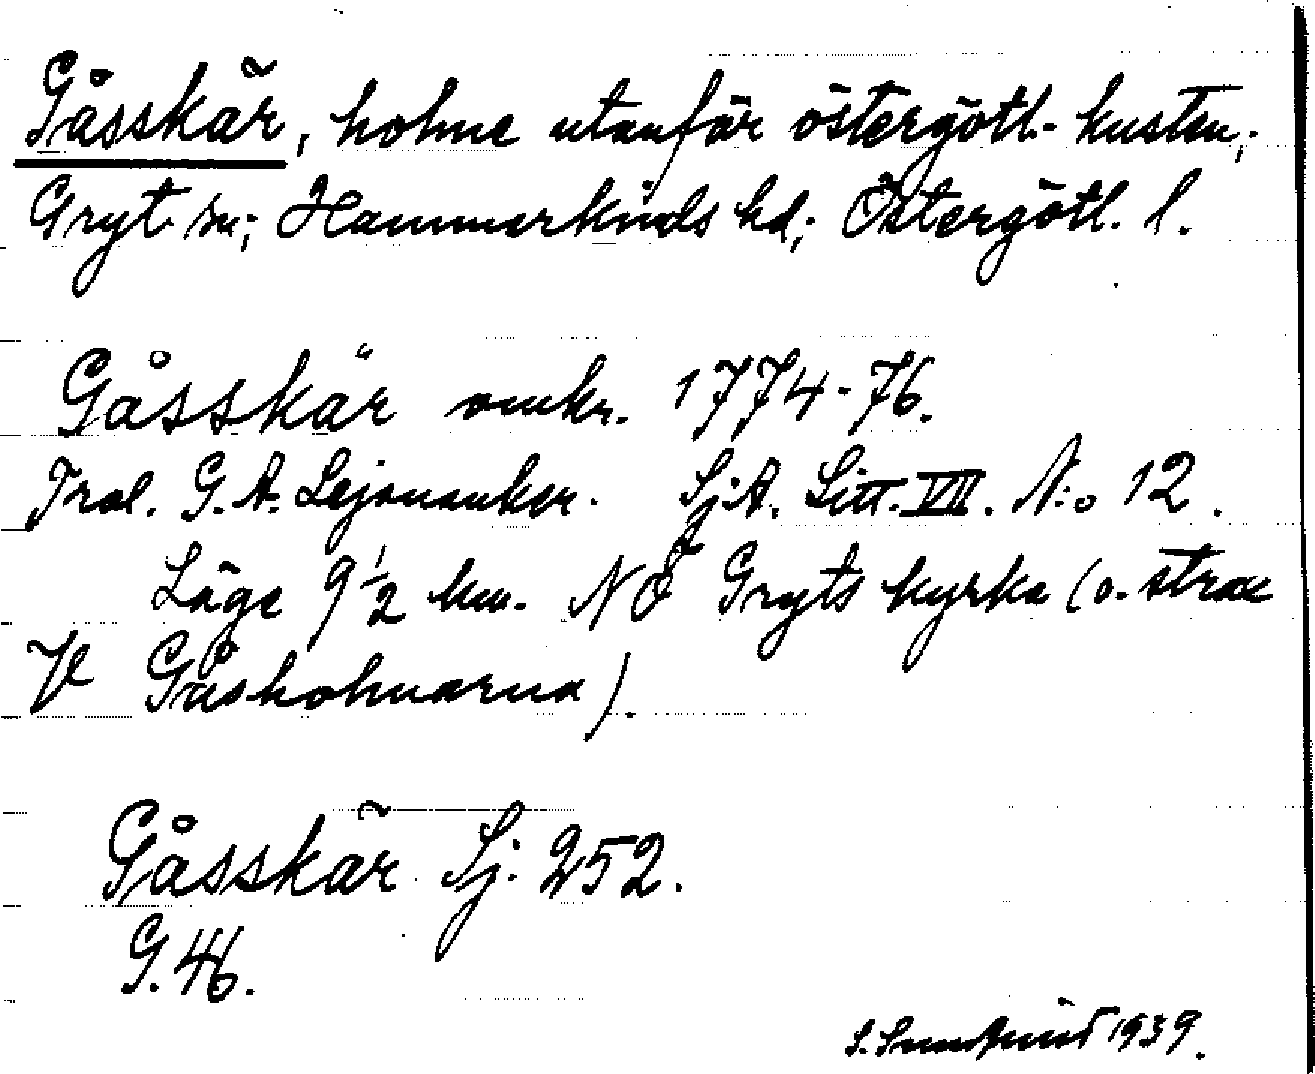 Gåsskär, holme utanför östergötl. kusten,
Gryt sn; Hammarkinds hd; Östergötl. l.
Gåsskär omkr. 1774-76.
Trol. G. A. Lejonanker. Sj.A. Litt. VII. N:o 12.
Läge 9 1/2 km. NÖ Gryts kyrka (o. strax
V Gåsholmarna).
Gåsskär Sj. 252.
G. 46.
S. Sundqvist 1939.